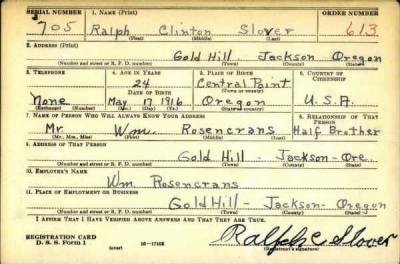 SERIAL NUMBER 1. NAME (Print) ORDER NUMBER
705 Ralph Clinton Slover 613
(First) (Middle) (Last)
2. ADDRESS (Print)
Gold Hill - Jackson Oregon
(Number and street or R. F. D. number) (Town) (County) (State)
3. TELEPHONE 4. AGE IN YEARS 5. PLACE OF BIRTH 6. COUNTRY OF CITIZENSHIP
24 Central Point
DATE OF BIRTH (Town or county)
None May 17 1916 Oregon U.S.A.
(Exchange) (Number) (Mo.) (Day) (Yr.) (State or country)
7. NAME OF PERSON WHO WILL ALWAYS KNOW YOUR ADDRESS 8. RELATIONSHIP OF THAT PERSON
Mr. Wm. Rosencrans Half Brother
(Mr., Mrs., Miss) (First) (Middle) (Last)
9. ADDRESS OF THAT PERSON
Gold Hill - Jackson - Ore.
(Number and street or R. F. D. number) (Town) (County) (State)
10. EMPLOYER'S NAME
Wm. Rosencrans
11. PLACE OF EMPLOYMENT OR BUSINESS
Gold Hill - Jackson - Oregon
(Number and street or R. F. D. number) (Town) (County) (State)
I AFFIRM THAT I HAVE VERIFIED ABOVE ANSWERS AND THAT THEY ARE TRUE.
REGISTRATION CARD
D. S. S. Form 1 (over) 16—17105 Ralph C Slover
(Registrant's signature)